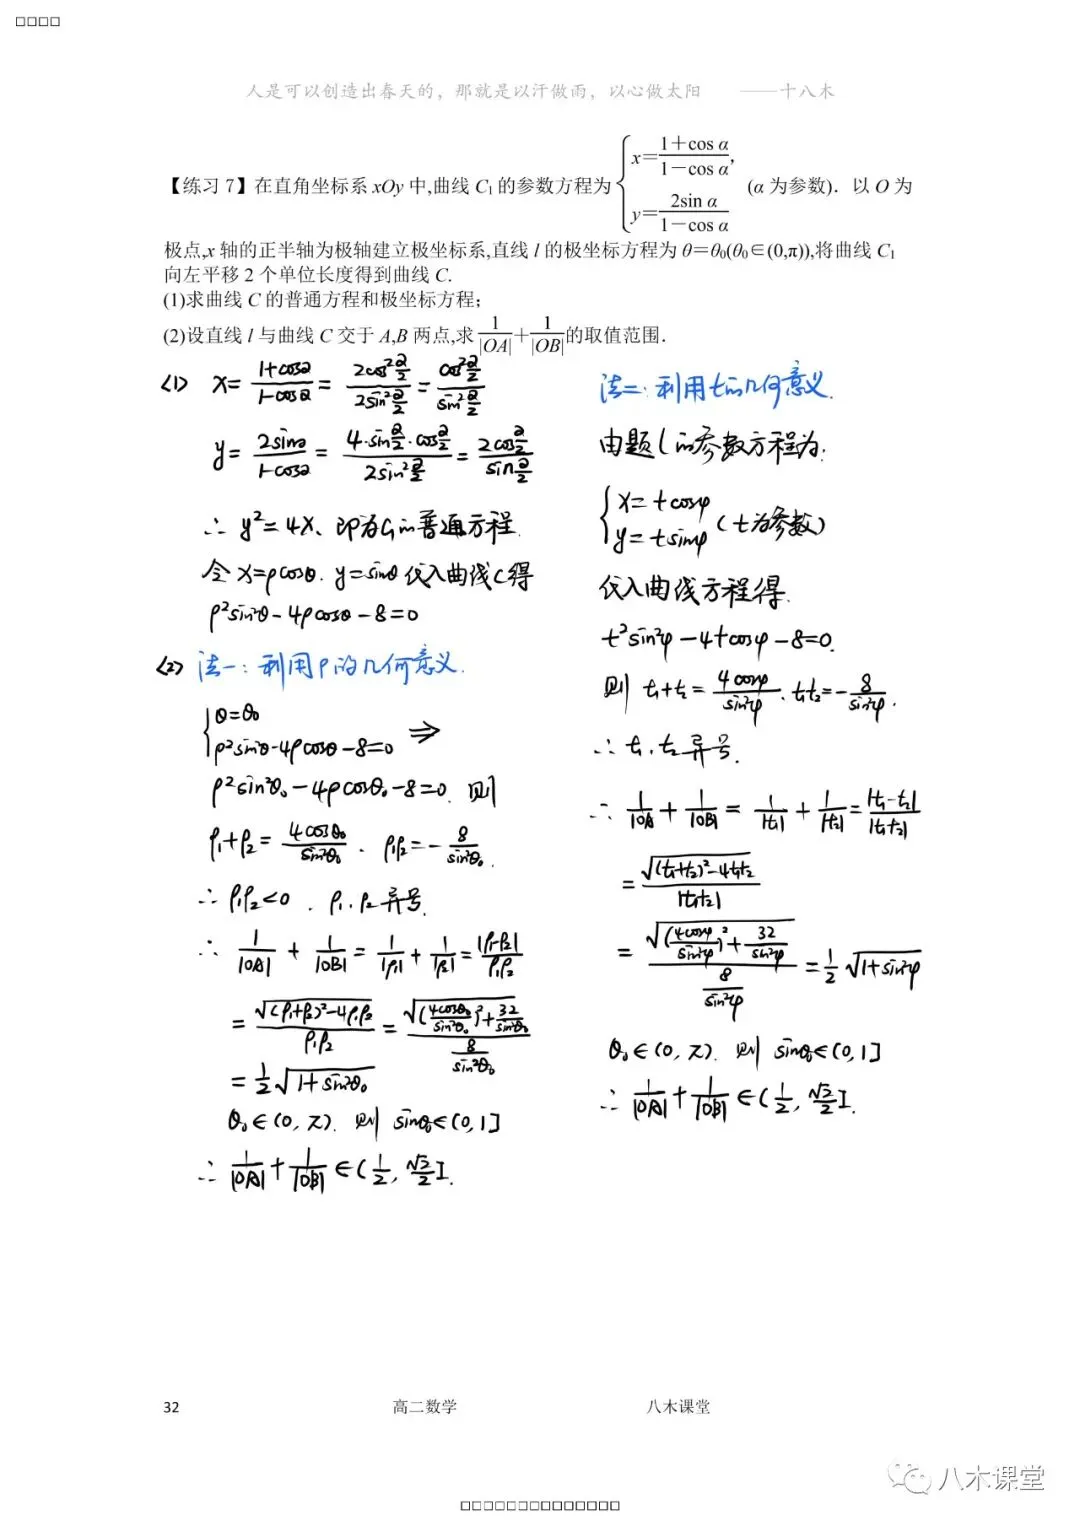 人是可以创造出春天的，那就是以汗做雨，以心做太阳 ——十八木
【练习 7】在直角坐标系 xOy 中,曲线 C₁ 的参数方程为 { x=(1+cos α)/(1-cos α), y=2sin α/(1-cos α) (α 为参数). 以 O 为
极点,x 轴的正半轴为极轴建立极坐标系,直线 l 的极坐标方程为 θ=θ₀(θ₀∈(0,π)),将曲线 C₁
向左平移 2 个单位长度得到曲线 C.
(1)求曲线 C 的普通方程和极坐标方程;
(2)设直线 l 与曲线 C 交于 A,B 两点,求 1/|OA|+1/|OB| 的取值范围.
(1) x= (1+cosα)/(1-cosα) = (2cos²α/2)/(2sin²α/2) = (cos²α/2)/(sin²α/2)
y= 2sinα/(1-cosα) = (4·sinα/2·cosα/2)/(2sin²α/2) = (2cosα/2)/(sinα/2)
∴ y²=4x、即为C₁的普通方程.
令 x=ρcosθ. y=sinθ 代入曲线C得
ρ²sin²θ-4ρcosθ-8=0
(2) 法一：利用ρ的几何意义.
{ θ=θ₀
ρ²sin²θ-4ρcosθ-8=0 ⇒
ρ²sin²θ₀-4ρcosθ₀-8=0. 则
ρ₁+ρ₂= 4cosθ₀/sin²θ₀ 、 ρ₁ρ₂=- 8/sin²θ₀.
∴ ρ₁ρ₂<0 . ρ₁、ρ₂异号.
∴ 1/|OA| + 1/|OB| = 1/|ρ₁| + 1/|ρ₂| = |ρ₁-ρ₂|/ρ₁ρ₂
= √((ρ₁+ρ₂)²-4ρ₁ρ₂)/ρ₁ρ₂ = √((4cosθ₀/sin²θ₀)²+32/sin²θ₀)/(8/sin²θ₀)
= 1/2 √(1+sin²θ₀)
θ₀∈(0,π). 则 sinθ₀∈(0,1]
∴ 1/|OA| + 1/|OB| ∈(1/2, √2/2].
法二：利用t的几何意义.
由题l的参数方程为:
{ x=tcosφ
y=tsinφ (t为参数)
代入曲线方程得.
t²sin²φ-4tcosφ-8=0.
则 t₁+t₂= 4cosφ/sin²φ . t₁t₂=- 8/sin²φ.
∴ t₁、t₂异号.
∴ 1/|OA| + 1/|OB| = 1/|t₁| + 1/|t₂| = |t₁-t₂|/|t₁t₂|
= √((t₁+t₂)²-4t₁t₂)/|t₁t₂|
= √((4cosφ/sin²φ)²+32/sin²φ)/(8/sin²φ) = 1/2 √(1+sin²φ)
θ₀∈(0,π). 则 sinθ₀∈(0,1]
∴ 1/|OA| + 1/|OB| ∈(1/2, √2/2].
32 高二数学 八木课堂
八木课堂